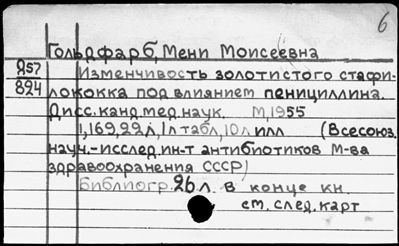 6
Гольдфарб, Мени Моисеевна
257 Изменчивость золотистого стафи-
824 лококка под влиянием пенициллина.
Дисс. канд. мед. наук. М, 1955
1, 169, 22 л, 1 л табл, 10 л илл (Всесоюз.
науч.-исслед ин-т антибиотиков М-ва
здравоохранения СССР)
Библиогр. 26 л. в конце кн.
см. след. карт